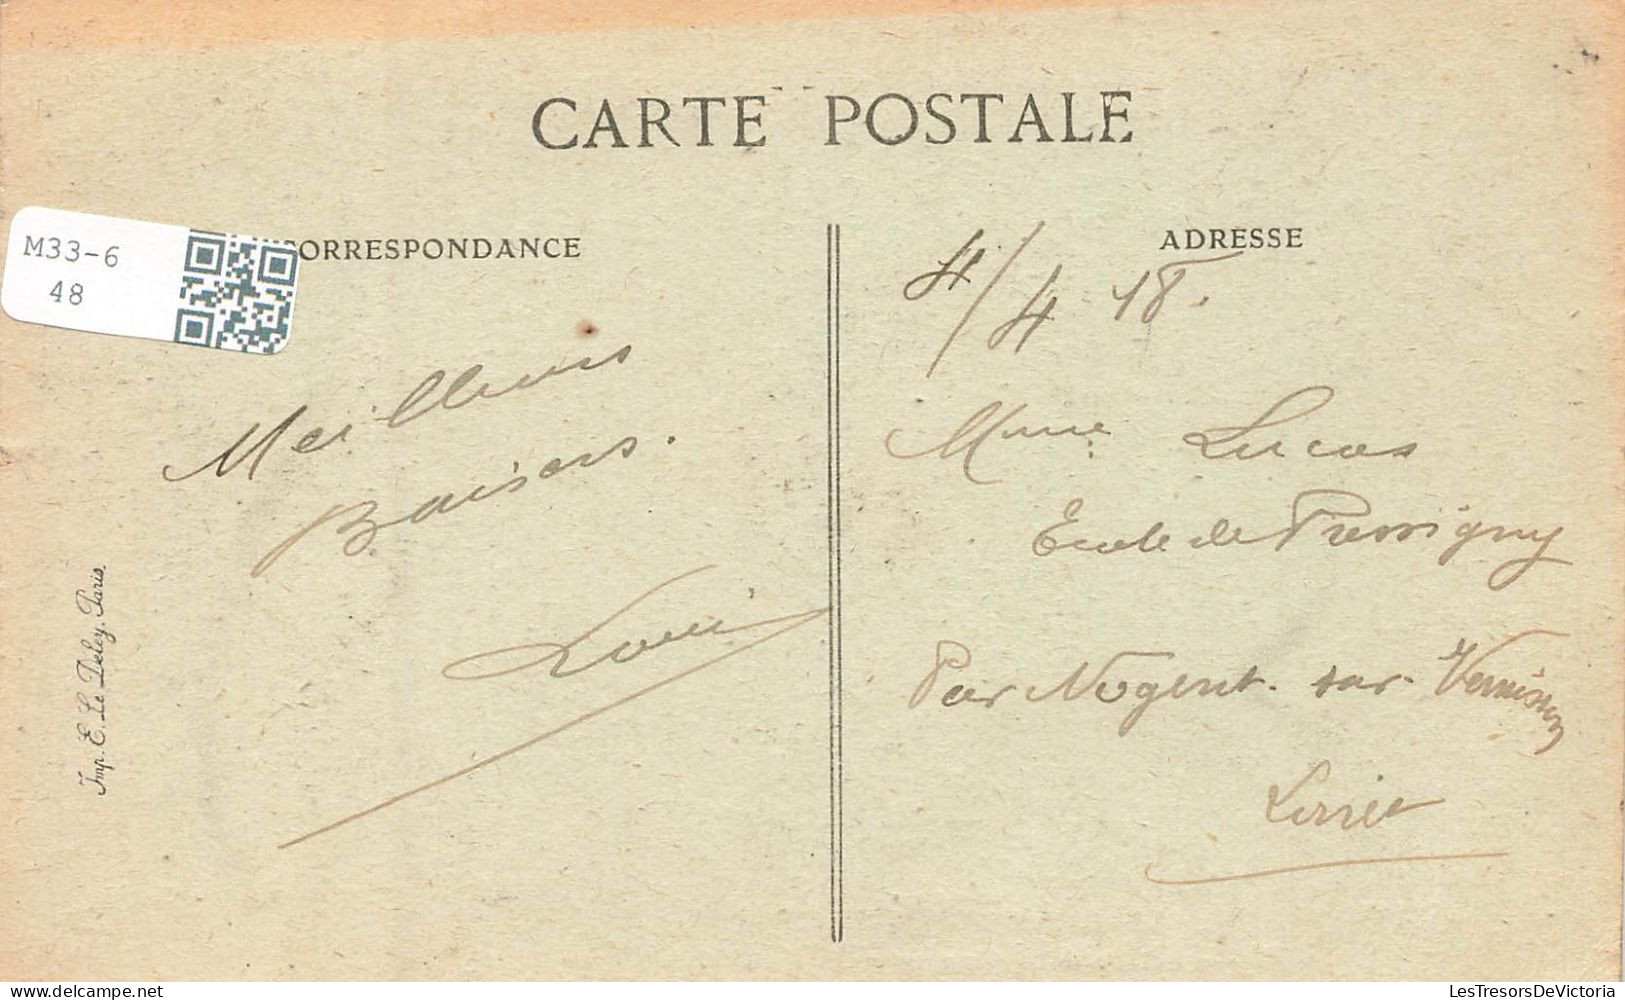 CARTE POSTALE
M33-6
48
CORRESPONDANCE
ADRESSE
4/4 18.
Meilleurs
Baisers.
Louis
Mme Lucas
Ecole de Pressigny
Par Nogent. sur. Vernisson
Loiret
Imp. E. Le Deley, Paris.
www.delcampe.net
LesTresorsDeVictoria